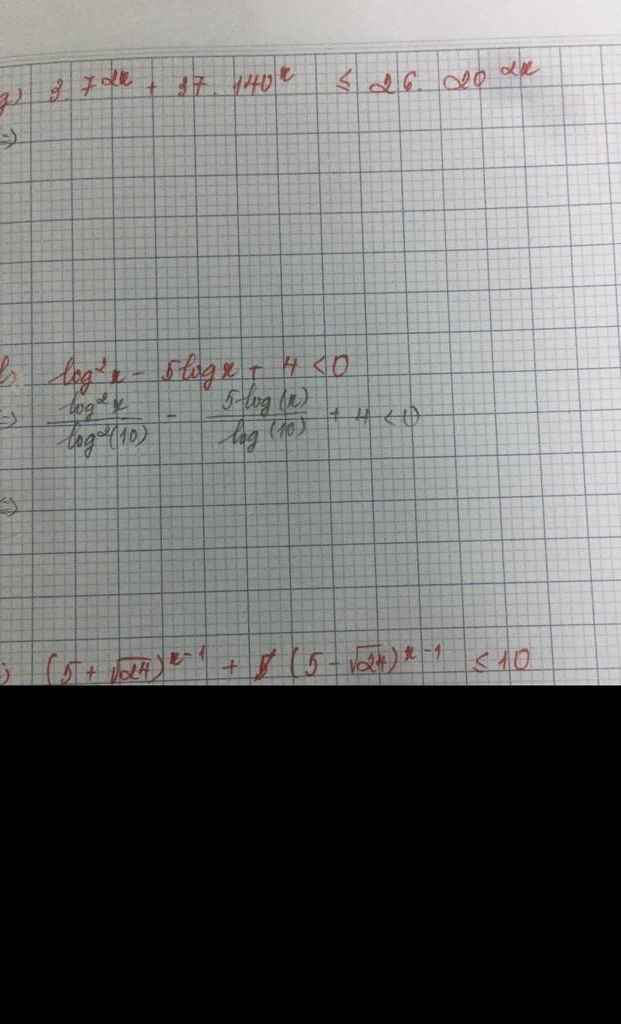 g) 3 7^2x + 37. 140^x ≤ 26. 20^2x
=)
log²x - 5logx + 4 <0
log²x / log²(10) - 5 log(x) / log(10) + 4 < 0
=)
(5 + √24)^x-1 + (5 - √24)^x-1 ≤ 10